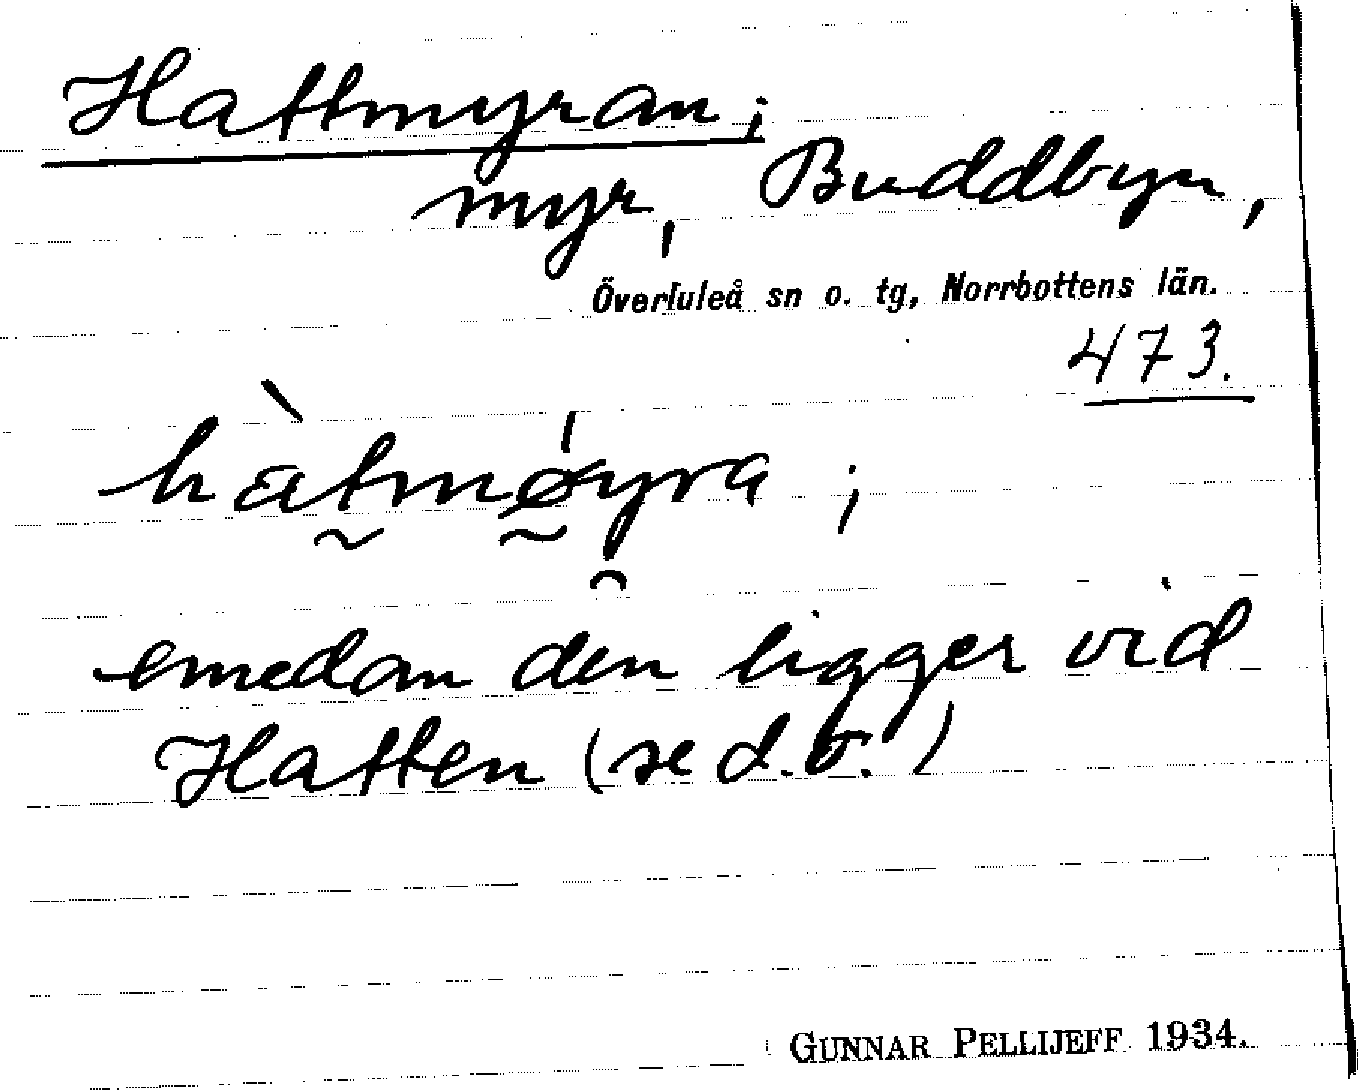 Hattmyran;
myr, Buddbyn,
Överluleå sn o. tg, Norrbottens län.
473.
hàtmøyra ;
emedan den ligger vid
Hatten (se d.o.)
GUNNAR PELLIJEFF 1934.